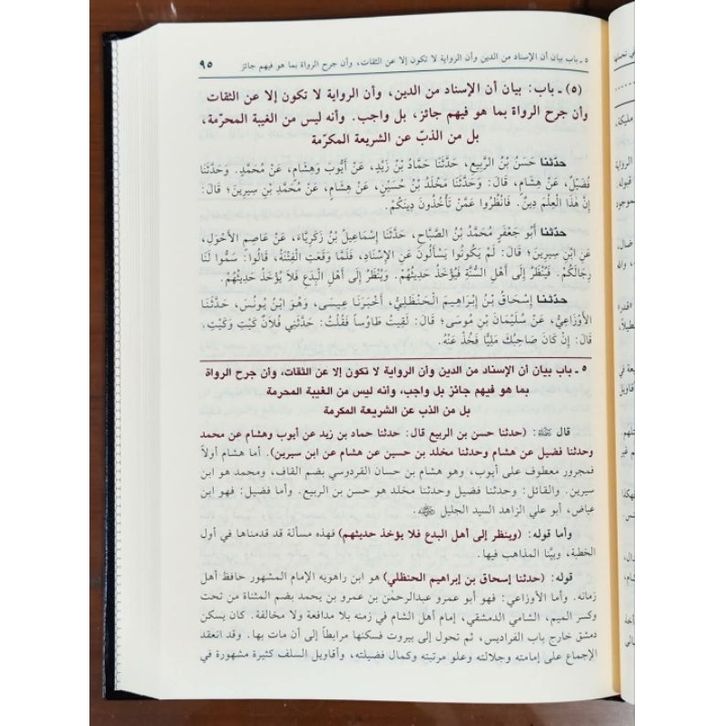 ٥ ـ باب بيان أن الإسناد من الدين وأن الرواية لا تكون إلا عن الثقات، وأن جرح الرواة بما هو فيهم جائز ٩٥
(٥) ـ باب: بيان أن الإسناد من الدين، وأن الرواية لا تكون إلا عن الثقات
وأن جرح الرواة بما هو فيهم جائز، بل واجب. وأنه ليس من الغيبة المحرّمة،
بل من الذبّ عن الشريعة المكرّمة
حدّثنا حَسَنُ بْنُ الرَّبِيعِ، حَدَّثَنَا حَمَّادُ بْنُ زَيْدٍ، عَنْ أَيُّوبَ وَهِشَامٍ، عَنْ مُحَمَّدٍ. وَحَدَّثَنَا
فُضَيْلٌ، عَنْ هِشَامٍ، قَالَ: وَحَدَّثَنَا مَخْلَدُ بْنُ حُسَيْنٍ، عَنْ هِشَامٍ، عَنْ مُحَمَّدِ بْنِ سِيرِينَ؛ قَالَ:
إِنَّ هَٰذَا الْعِلْمَ دِينٌ. فَانْظُرُوا عَمَّنْ تَأْخُذُونَ دِينَكُمْ.
حدّثنا أَبُو جَعْفَرٍ مُحَمَّدُ بْنُ الصَّبَّاحِ، حَدَّثَنَا إِسْمَاعِيلُ بْنُ زَكَرِيَّاءَ، عَنْ عَاصِمٍ الأَحْوَلِ،
عَنِ ابْنِ سِيرِينَ؛ قَالَ: لَمْ يَكُونُوا يَسْأَلُونَ عَنِ الإِسْنَادِ، فَلَمَّا وَقَعَتِ الْفِتْنَةُ، قَالُوا: سَمُّوا لَنَا
رِجَالَكُمْ. فَيُنْظَرُ إِلَى أَهْلِ السُّنَّةِ فَيُؤْخَذُ حَدِيثُهُمْ. وَيُنْظَرُ إِلَى أَهْلِ الْبِدَعِ فَلَا يُؤْخَذُ حَدِيثُهُمْ.
حدّثنا إِسْحَاقُ بْنُ إِبْرَاهِيمَ الْحَنْظَلِيُّ، أَخْبَرَنَا عِيسَى، وَهُوَ ابْنُ يُونُسَ، حَدَّثَنَا
الأَوْزَاعِيُّ، عَنْ سُلَيْمَانَ بْنِ مُوسَى؛ قَالَ: لَقِيتُ طَاوُسًا فَقُلْتُ: حَدَّثَنِي فُلَانٌ كَيْتَ وَكَيْتَ.
قَالَ: إِنْ كَانَ صَاحِبُكَ مَلِيًّا فَخُذْ عَنْهُ.
٥ ـ باب بيان أن الإسناد من الدين وأن الرواية لا تكون إلا عن الثقات، وأن جرح الرواة
بما هو فيهم جائز بل واجب، وأنه ليس من الغيبة المحرمة
بل من الذب عن الشريعة المكرمة
قال ﷺ: (حدثنا حسن بن الربيع قال: حدثنا حماد بن زيد عن أيوب وهشام عن محمد
وحدثنا فضيل عن هشام وحدثنا مخلد بن حسين عن هشام عن ابن سيرين). أما هشام أولاً
فمجرور معطوف على أيوب، وهو هشام بن حسان القردوسي بضم القاف، ومحمد هو ابن
سيرين. والقائل: وحدثنا فضيل وحدثنا مخلد هو حسن بن الربيع. وأما فضيل: فهو ابن
عياض، أبو علي الزاهد السيد الجليل
وأما قوله: (وينظر إلى أهل البدع فلا يؤخذ حديثهم) فهذه مسألة قد قدمناها في أول
الخطبة، وبيّنا المذاهب فيها.
قوله: (حدثنا إسحاق بن إبراهيم الحنظلي) هو ابن راهويه الإمام المشهور حافظ أهل
زمانه. وأما الأوزاعي: فهو أبو عمرو عبدالرحمٰن بن عمرو بن يحمد بضم المثناة من تحت
وكسر الميم، الشامي الدمشقي، إمام أهل الشام في زمنه بلا مدافعة ولا مخالفة. كان يسكن
دمشق خارج باب الفراديس، ثم تحول إلى بيروت فسكنها مرابطاً إلى أن مات بها. وقد انعقد
الإجماع على إمامته وجلالته وعلو مرتبته وكمال فضيلته، وأقاويل السلف كثيرة مشهورة في